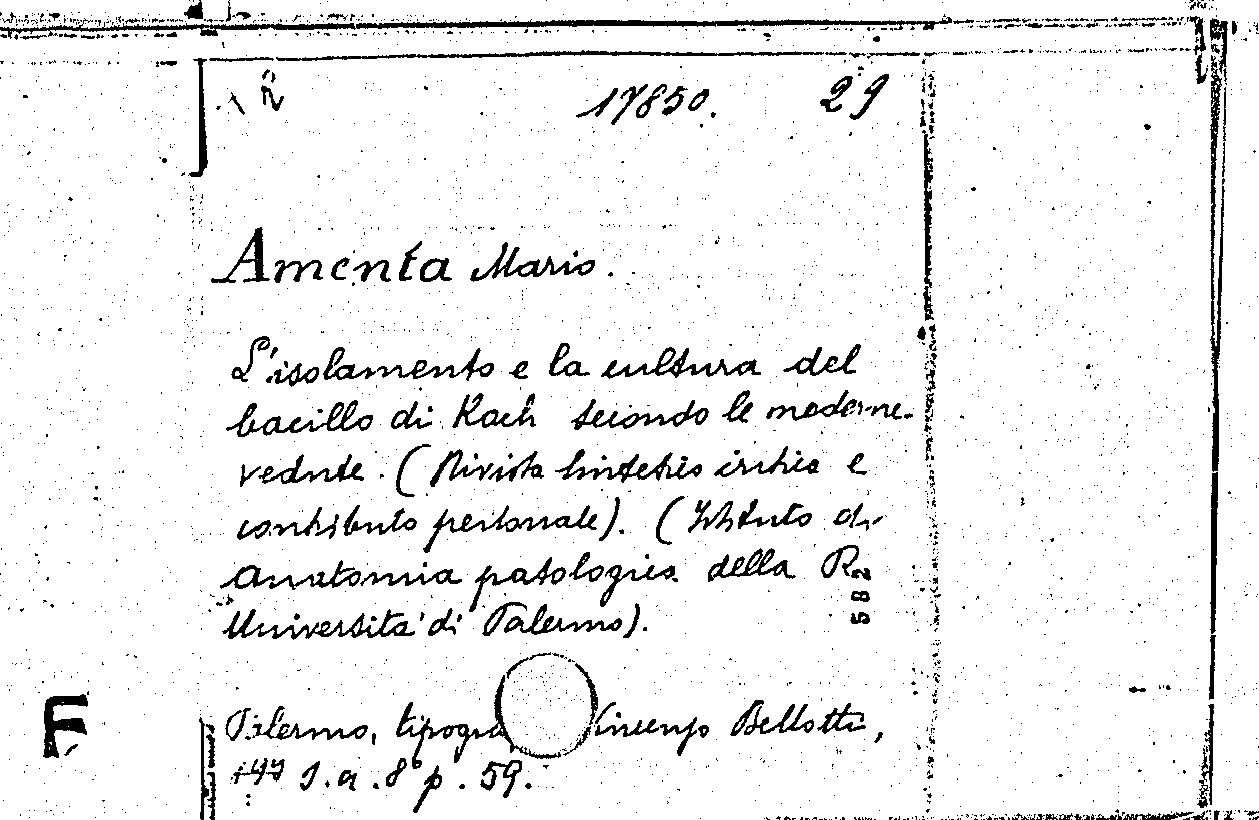 17850. 29
Amenta Mario.
L'isolamento e la cultura del
bacillo di Koch secondo le moderne
vedute. (Rivista sintetico critica e
contributo personale). (Istituto di
Anatomia patologica della R.
582
Università di Palermo).
F
Palermo, Vincenzo Bellotti,
s.a. 8° p. 59.